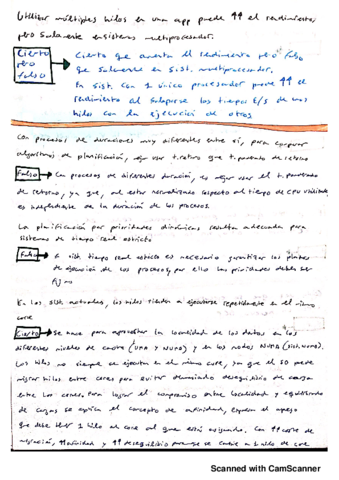 Utilizar múltiples hilos en una app puede ↑↑ el rendimiento,
pero solamente en sistemas multiprocesador.
Cierto pero falso → Cierto que aumenta el rendimiento pero falso
que solamente en sist. multiprocesador.
En sist. con 1 único procesador puede ↑↑ el
rendimiento al solaparse los tiempos E/S de unos
hilos con la ejecución de otros
Con procesos de duraciones muy diferentes entre sí, para comparar
algoritmos de planificación, mejor usar t.retorno que t.ponderado de retorno
Falso → Con procesos de diferentes duración, es mejor usar el t.ponderado
de retorno, ya que, al estar normalizado respecto al tiempo de CPU utilizado
es independiente de la duración de los procesos.
La planificación por prioridades dinámicas resulta adecuada para
sistemas de tiempo real estricto
Falso → sist. tiempo real estricto es necesario garantizar los plazos
de ejecución de los procesos, por ello las prioridades deben ser
fijas
En los sist. actuales, los hilos tienden a ejecutarse repetidamente en el mismo
core
Cierto → Se hace para aprovechar la localidad de los datos en los
diferentes niveles de cache (UMA y NUMA) y en los nodos NUMA (sist. NUMA).
Los hilos no siempre se ejecutan en el mismo core, ya que el SO puede
migrar hilos entre cores para evitar demasiado desequilibrio de carga
entre los cores. Para lograr el compromiso entre localidad y equilibrado
de cargas se aplica el concepto de afinidad, expresa el apego
que debe tener 1 hilo al core al que está asignado. Con ↑↑ coste de
migración, ↑↑ afinidad y ↑↑ desequilibrio para que se cambie a 1 hilo de core
Scanned with CamScanner